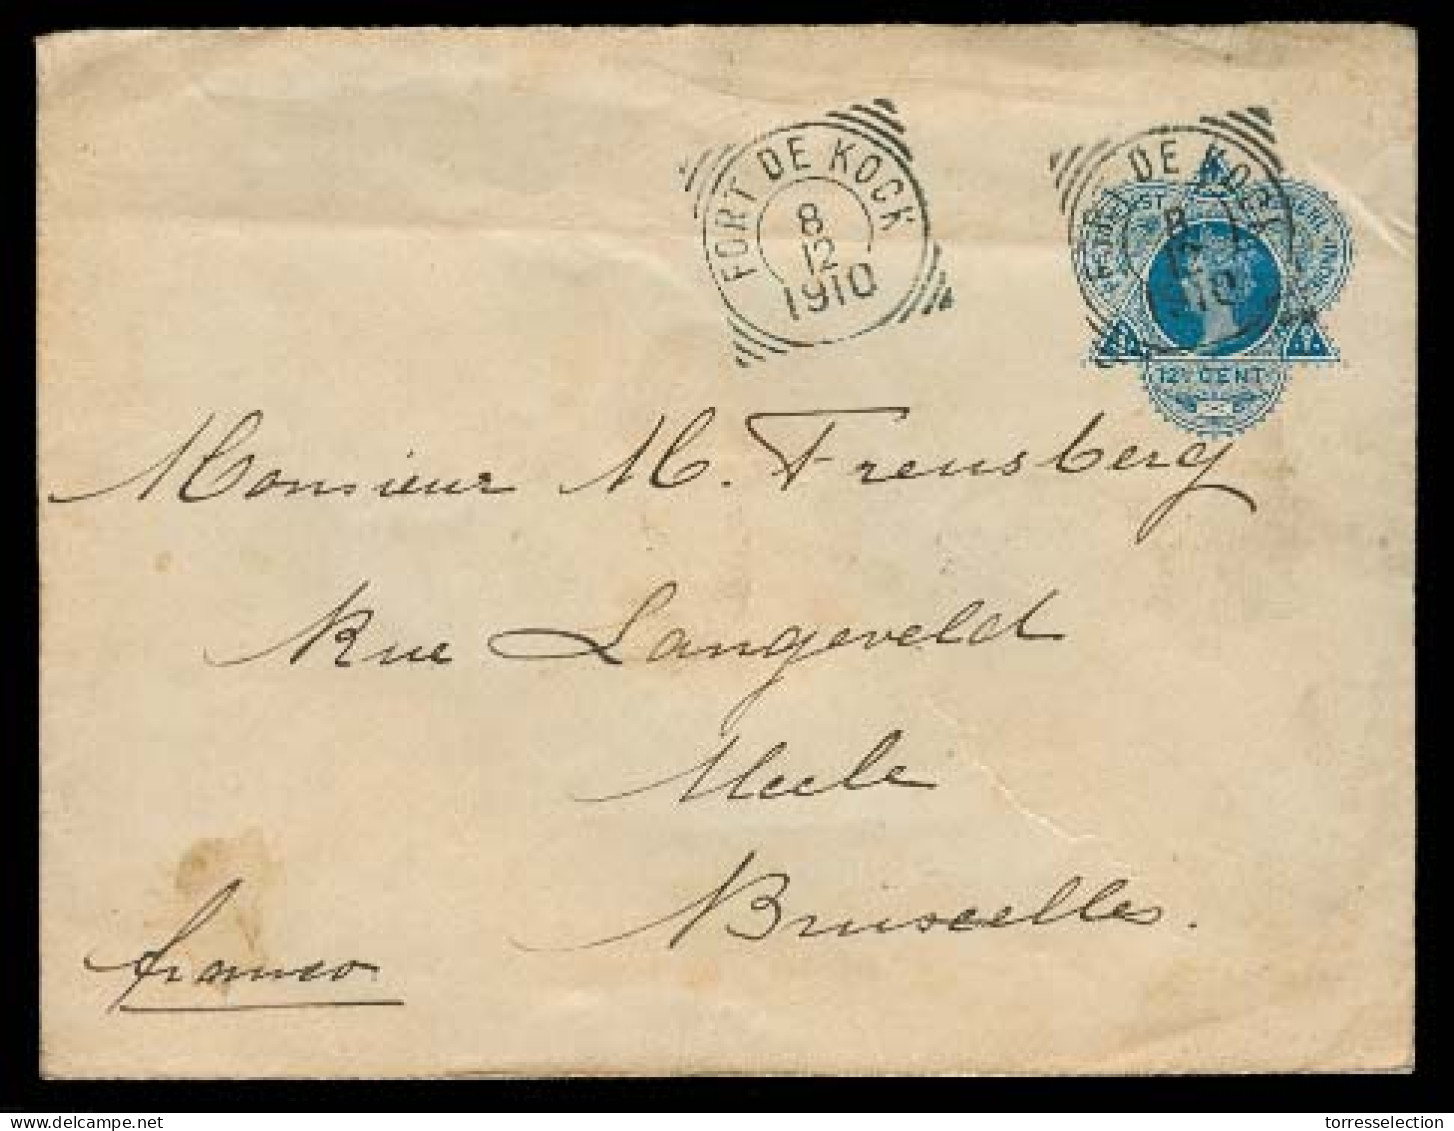 FORT DE KOCK
8
12
1910
FORT DE KOCK
8
12
1910
12½ CENT
Monsieur M. Freusberg
Rue Langeveld
Uccle
Bruxelles.
franco
delcampe.net
torresselection